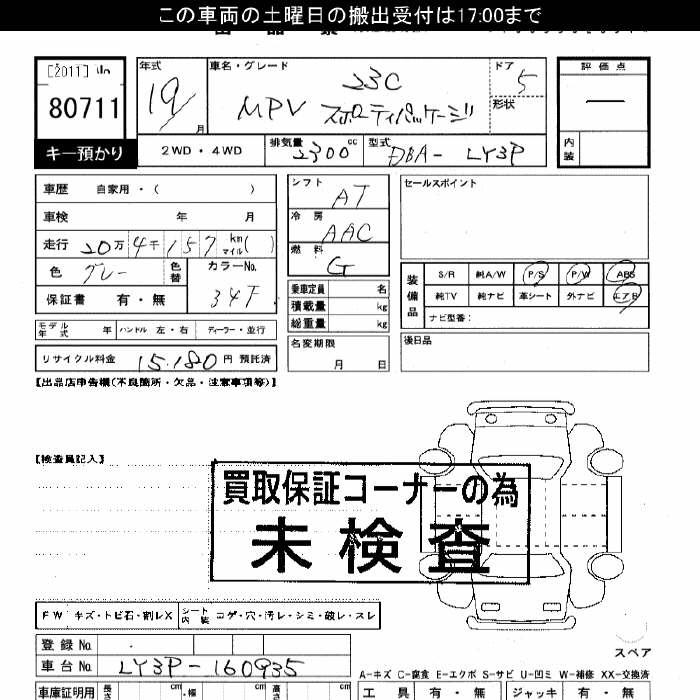 この車両の土曜日の搬出受付は17:00まで
[2011]
80711
キー預かり
年式
19
月
車名・グレード
23C
MPV スポーティパッケージ
ドア
5
形状
評価点
―
内装
2WD・4WD
排気量
2300 cc
型式
DBA- LY3P
車歴 自家用・( )
車検 年 月
走行 20万4千157 km マイル( )
色 グレー
色替
カラーNo.
34F
保証書 有・無
シフト
AT
冷房
AAC
燃料
G
セールスポイント
装備品
S/R 純A/W P/S P/W ABS
純TV 純ナビ 革シート 外ナビ エアB
ナビ型番:
乗車定員 名
積載量 kg
総重量 kg
モデル年式 年 ハンドル 左・右 ディーラー・並行
名変期限
月 日
後日品
リサイクル料金 15.180 円 預託済
【出品店申告欄(不良箇所・欠品・注意事項等)】
【検査員記入】
買取保証コーナーの為
未検査
FW キズ・トビ石・割レX シート内装 コゲ・穴・汚レ・シミ・破レ・スレ
スペア
登録No.
車台No. LY3P-160935
A-キズ C-腐食 E-エクボ S-サビ U-凹ミ W-補修 XX-交換済
車庫証明用 長さ cm 幅 cm 高さ cm
工具 有・無 ジャッキ 有・無